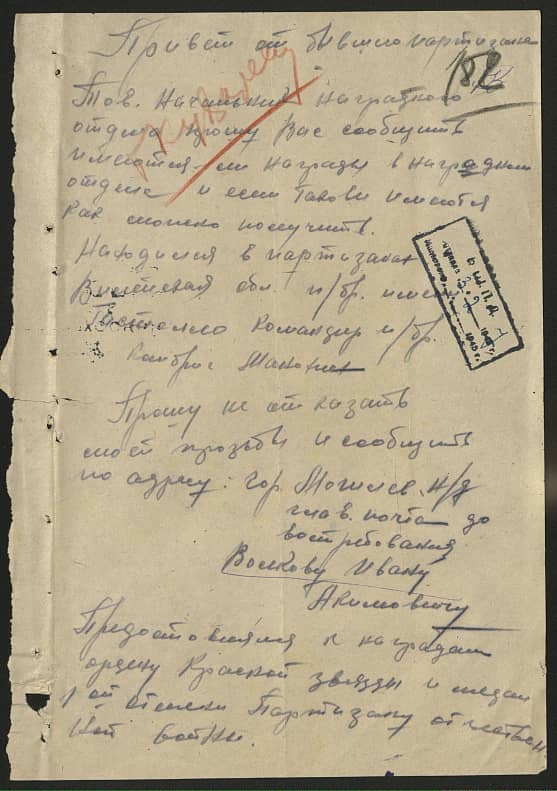 Привет от бывшего партизана
Тов. Начальник наградного
отдела прошу Вас сообщить
имеются-ли награды в наградном
отделе и если таковы имеются
как можно получить.
Находился в партизанах
Витебская обл. п/бр. имени
Гастелло командир п/бр.
Комбриг
Прошу не отказать
моей прозьбы и сообщить
по адресу: гор. Могилев. н/д
глав. почта до
востребования
Волкову Ивану
Акимовичу
Предоставлялся к наградам
ордену Красной звезды и медал
1 ой степени Партизану отечествен
ной войны.